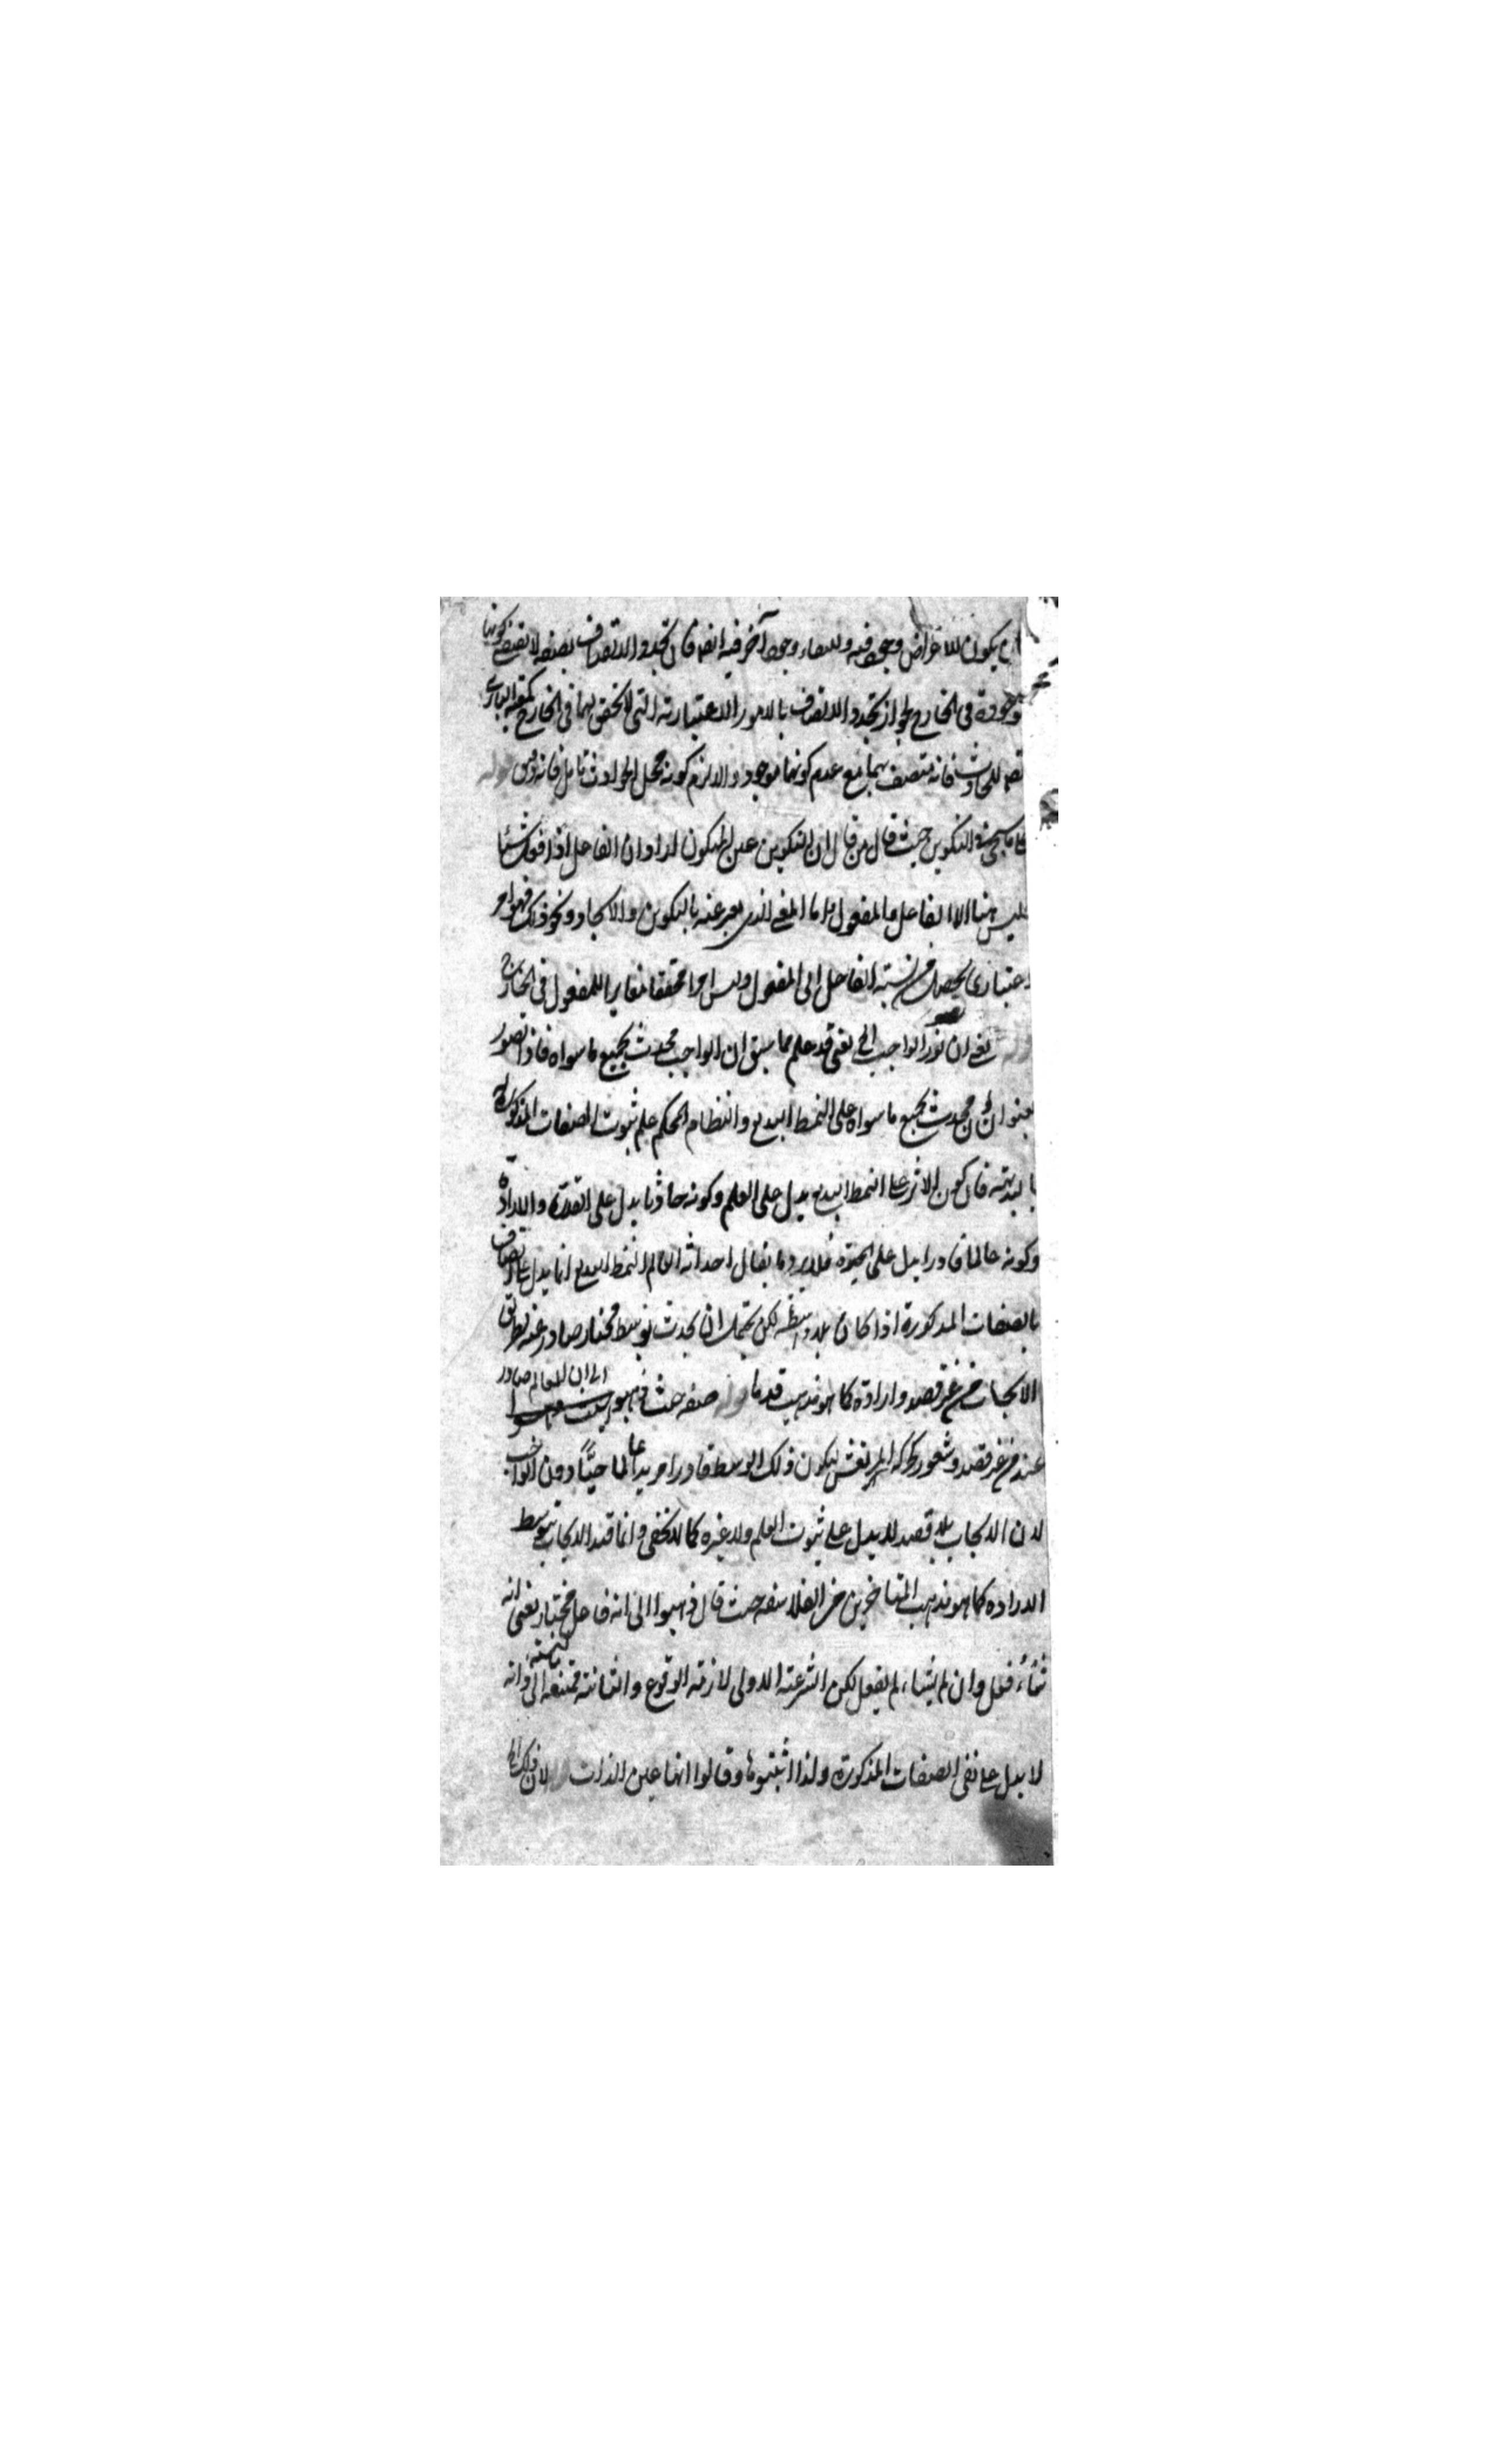 ان يكون للاعراض وجود فيه وللبقاء وجود آخر فيه ايضا فان تجدد الاتصاف بصفة لا يقتضي كونها
موجودة في الخارج لجواز تجدد الاتصاف بالامور الاعتبارية التي لا تحقق لها في الخارج كمعية الباري
تعالى للحادث فانه متصف بها مع عدم كونها موجودة والا لزم كونه محل الحوادث تأمل فانه دقيق قوله
كما سيجيء في التكوين حيث قال من قال ان التكوين عين المكون اراد ان الفاعل اذا فعل شيئا
فليس هنا الا الفاعل والمفعول واما المعنى الذي يعبر عنه بالتكوين والايجاد ونحو ذلك فهو امر
اعتباري يحصل من نسبة الفاعل الى المفعول وليس امرا محققا مغايرا للمفعول في الخارج
قوله يعني ان تصور الواجب الخ يعني قد علم مما سبق ان الواجب محدث لجميع ما سواه فاذا تصور
بعنوان انه محدث لجميع ما سواه على النمط البديع وانتظام المحكم علم ثبوت الصفات المذكورة له
بالبديهة فان كون الاثر على النمط البديع يدل على العلم وكونه حادثا يدل على القدرة والارادة
وكونه عالما قادرا يدل على الحيوة فلا يرد ما يقال احداثه العالم النمط البديع انما يدل على اتصافه
بالصفات المذكورة اذا كان بلا واسطة لكن يحتمل ان يحدث بوسط مختار صادر عنه بطريق
الايجاب من غير قصد وارادة كما هو مذهب قدماء صفه حيث ذهبوا الى ان العالم صادر
عنه من غير قصد وشعور كحركة المرتعش ليكون ذلك الوسط قادرا مريدا عالما حيًّا دون الواجب
لان الايجاب بلا قصد لا يدل على ثبوت العلم ولا غيره كما لا يخفى وانما قيد الايجاب بتوسط
الارادة كما هو مذهب المتاخرين من الفلاسفة حيث قال ذهبوا الى انه فاعل مختار يعني انه
شاء فعل وان لم يشاء لم يفعل لكن الشرطية الاولى لازمة الوقوع والثانية ممتنعة الى وانه
لا يدل على نفي الصفات المذكورة ولذا اثبتوها وقالوا انها عين الذات لان ذلك